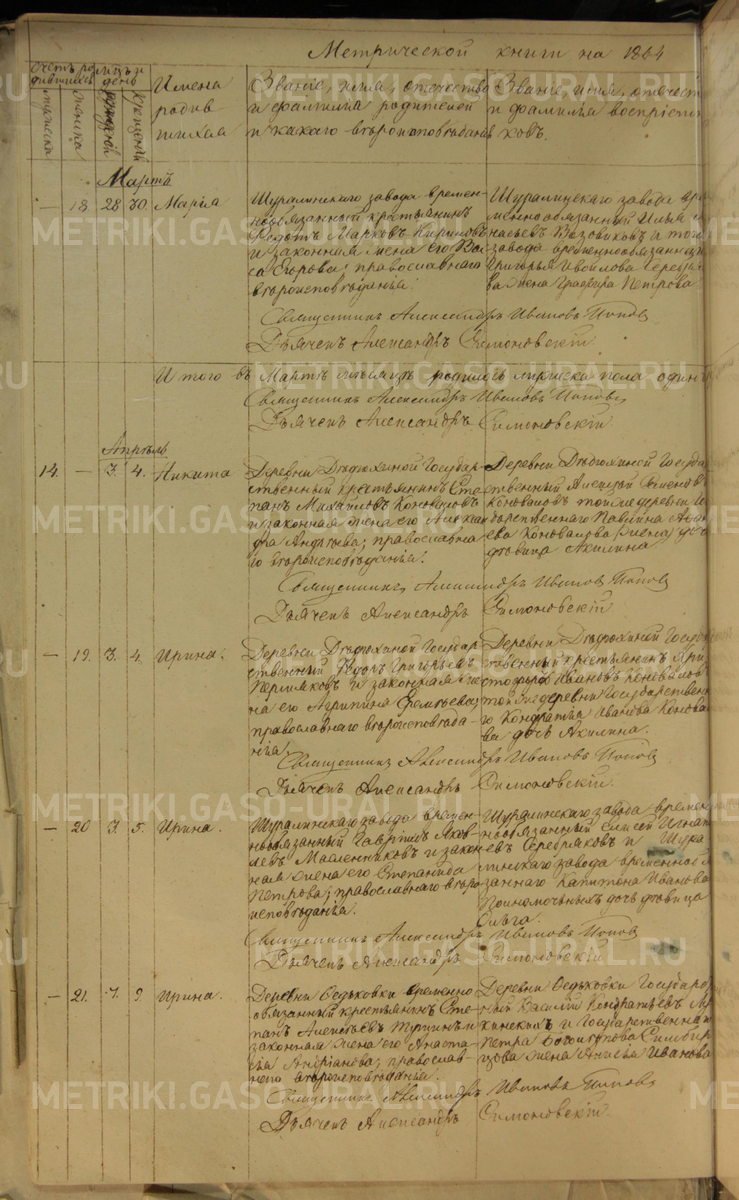 Метрической книги на 1864
Счетъ родившихся
Мѣсяцъ и день
Имена родившихся
Званіе, имя, отечество и фамилія родителей и какаго вѣроисповѣданія
Званіе имя, отечест и фамилія воспріемниковъ.
мужеска
женска
рожденій
крещеній
Мартъ
— 18. 28. 30. Марія
Шуралинскаго завода времен-
нообязанный крестьянинъ
Федотъ Марковъ Кириловъ
и законная жена его Васса
Егорова; православнаго
вѣроисповѣданія.
Шуралинскаго завода вре
меннообязанный
Вязовиковъ и тогожъ
завода временнообязаннаго
Григорья
жена Глафира Петрова
Священникъ Александръ Ивановъ Поповъ
Дьячекъ Александръ Симоновскій.
Итого въ Мартѣ мѣсяцѣ родилось мужеска пола одинъ
Священникъ Александръ Ивановъ Поповъ
Дьячекъ Александръ Симоновскій
Апрѣль
14. — 3. 4. Никита
Деревни Дѣдюхиной Государ-
ственный крестьянинъ Сте-
панъ Михайловъ Коноваловъ
и законная жена его Александ
ра Андреева; православна
го вѣроисповѣданія.
Деревни Дѣдюхиной Госуда
рственный Алексѣй
Коноваловъ тойже деревни Го
сударственнаго
Коновалова дочь
дѣвица Акилина
Священникъ Александръ Ивановъ Поповъ
Дьячекъ Александръ Симоновскій
— 19. 3. 4. Ирина.
Деревни Дѣдюхиной Государ
ственный Федоръ Григорьевъ
Пермяковъ и законная же
на его Агрипина
православнаго вѣроисповѣда-
нія.
Деревни Дѣдюхиной Госуда
рственный крестьянинъ Хри
стофоръ Ивановъ Коноваловъ
тойже деревни Государственна
го Кондратья Иванова Конова
ва дочь Акилина.
Священникъ Александръ Ивановъ Поповъ
Дьячекъ Александръ Симоновскій.
— 20 3. 5. Ирина.
Шуралинскаго завода времен-
нообязанный Гавріилъ Яков
левъ Масленниковъ и закон
ная жена его Степанида
Петрова; православнаго вѣро
исповѣданія.
Шуралинскаго завода времен
нообязанный Елисей Игнать
евъ Серебряковъ и Шура
линскаго завода временнообя
заннаго Капитона Иванова
дочь дѣвица
Ольга.
Священникъ Александръ Ивановъ Поповъ
Дьячекъ Александръ Симоновскій
— 21. 7. 9. Ирина.
Деревни Федьковки временно
обязанный крестьянинъ Сте
панъ Алексѣевъ и
законная жена его Анаста
сья Андріанова; православ-
наго вѣроисповѣданія.
Деревни Федьковки Государс
ный Василій Кондратьевъ
и Государственнаго
Петра
жена Иванова
Священникъ Александръ Ивановъ Поповъ
Дьячекъ Александръ Симоновскій.
METRIKI.GASOURAL.RU